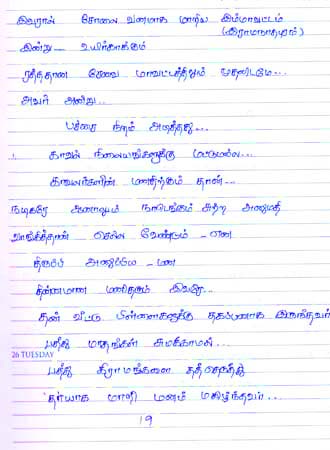 இவரால் சோலை வனமாக மாறிய இம்மாவட்டம்
(இராமநாதபுரம்)
இன்று உயிர்காக்கும்
ரத்ததான சேவை மாவட்டத்திலும் முதலிடமே...
அவர் அன்று..
பச்சை நிறம் அடித்தது...
காவல் நிலையங்களுக்கு மட்டுமல்ல...
காவலர்களின் மனதிற்கும் தான்...
நடிகரே ஆனாலும் நாடெங்கும் சுற்ற அனுமதி
வாங்கித்தான் செல்ல வேண்டும் - என
திருப்பி அனுப்பிய - மன
திண்மமான மனிதரும் இவரே...
தன் வீட்டு பிள்ளைகளுக்கு தகப்பனாக இருந்தவர்
பத்து மாதங்கள் சுமக்காமல்...
26 TUESDAY
பத்து கிராமங்களை தத்தெடுத்து
தாயாக மாறி மனம் மகிழ்ந்தவர்...
19